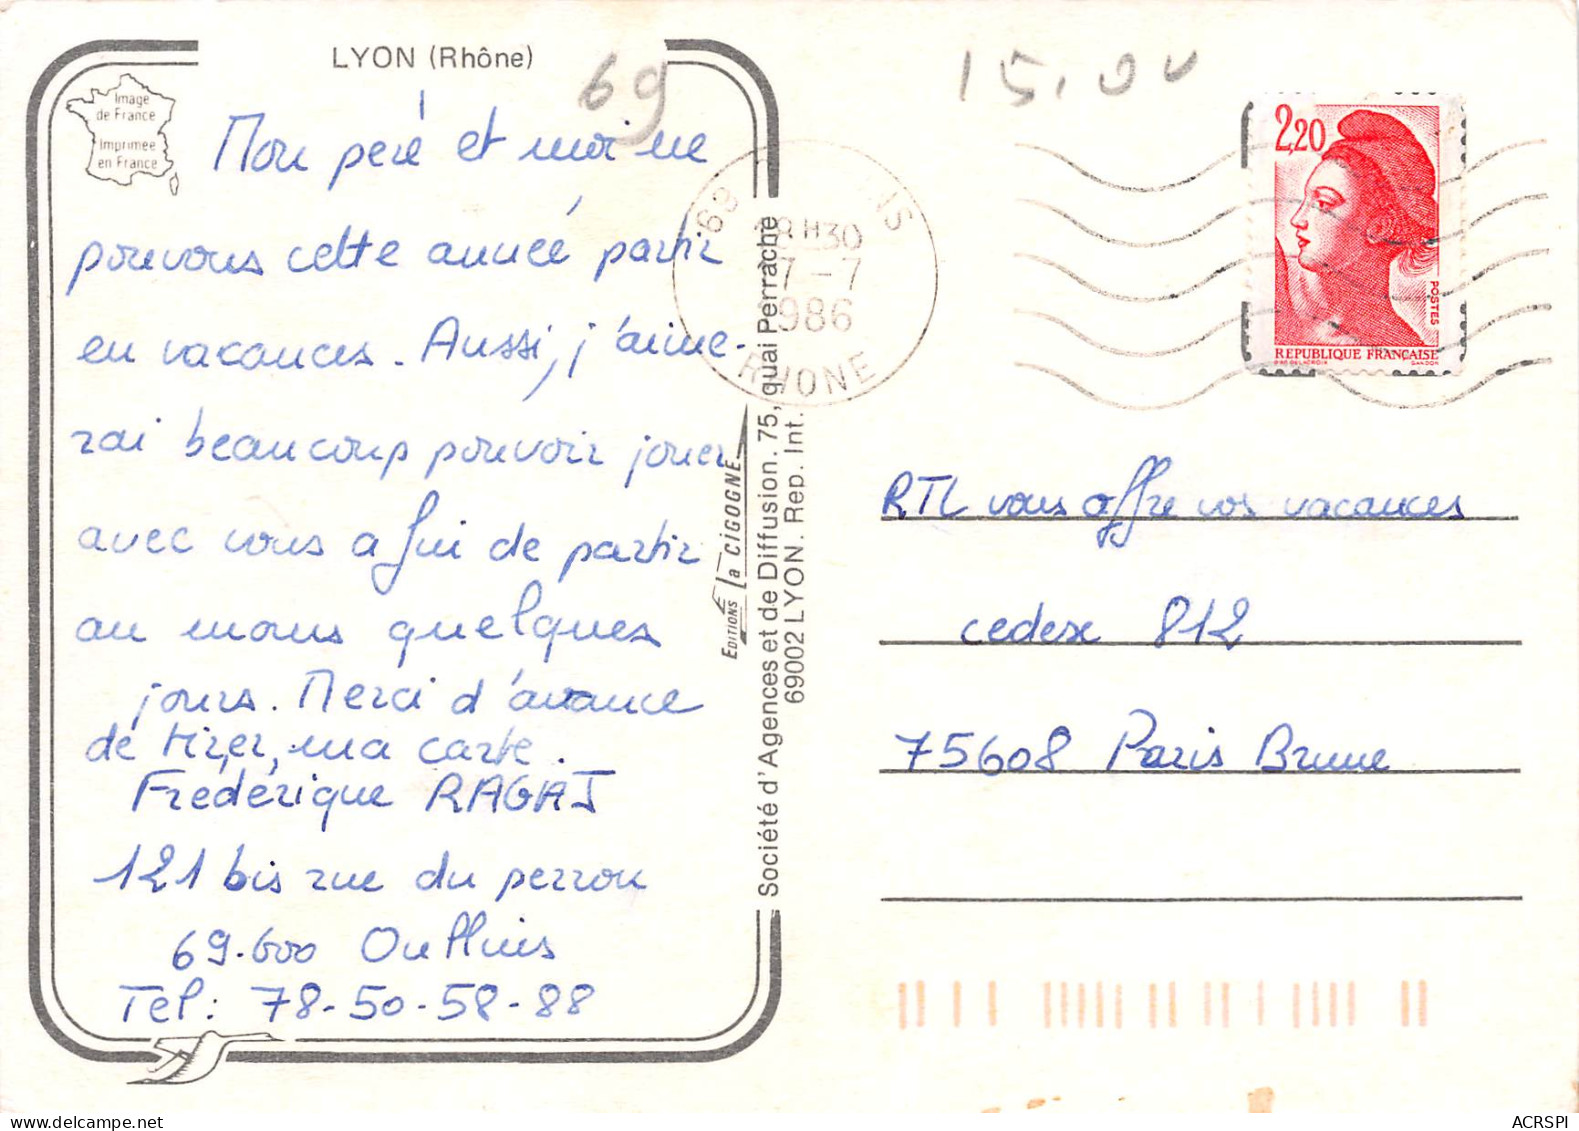 LYON (Rhône)
69
15,00
Image
de France
Imprimée
en France
Mon peré et moi ne
pouvons cette année partir
en vacances. Aussi, j'aime-
rai beaucoup pouvoir jouer
avec vous afin de partir
au moins quelques
jours. Merci d'avance
de tirer, ma carte.
Frédérique RAGAJ
121 bis rue du perron
69.600 Oullins
Tel: 78-50-58-88
EDITIONS La CIGOGNE
Société d'Agences et de Diffusion. 75, quai Perrache
69002 LYON. Rep. Int.
69
H30
7-7
1986
RHONE
2,20
POSTES
REPUBLIQUE FRANÇAISE
D'AP. DELACROIX GANDON
RTL vous offre vos vacances
cedex 812
75608 Paris Brune
ACRSPI